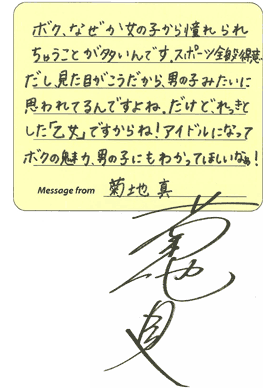 ボク、なぜか女の子から憧れられ
ちゃうことが多いんです。スポーツ全般得意
だし、見た目がこうだから、男の子みたいに
思われてるんですよね。だけどれっきと
した「乙女」ですからね!アイドルになって
ボクの魅力、男の子にもわかってほしいなぁ!
Message from 菊地 真
菊地真